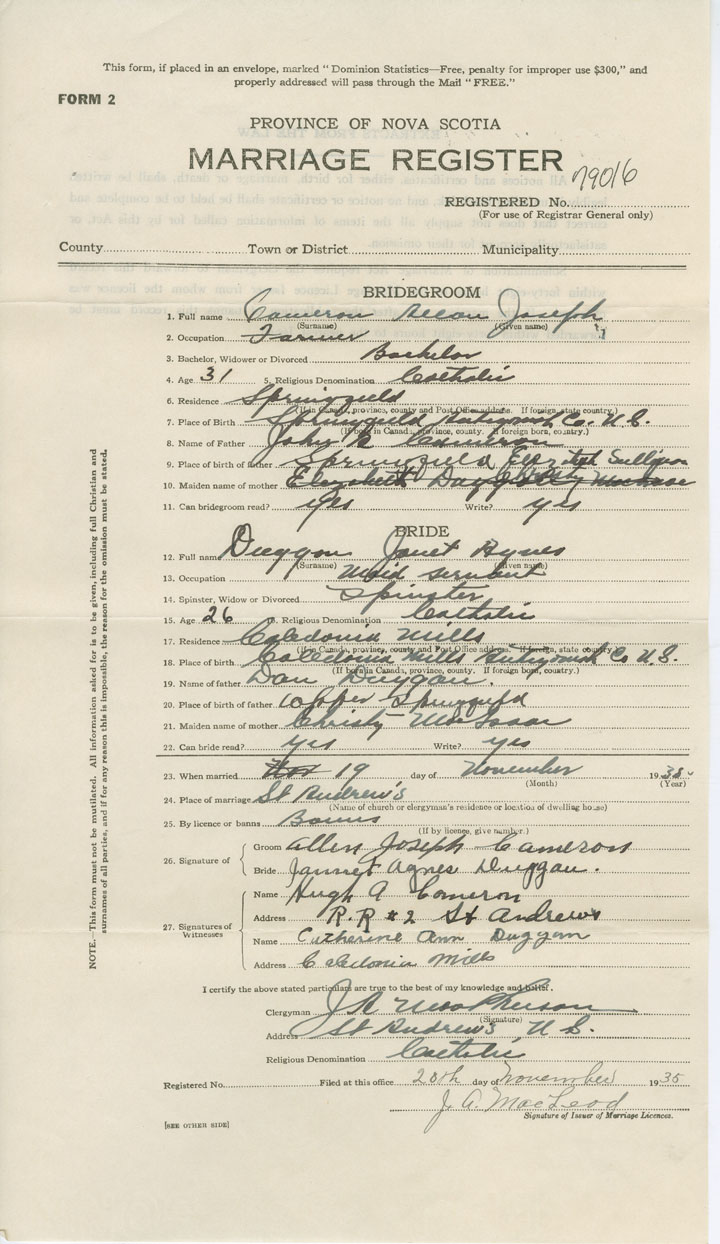 This form, if placed in an envelope, marked "Dominion Statistics—Free, penalty for improper use $300," and
properly addressed will pass through the Mail "FREE."
FORM 2
PROVINCE OF NOVA SCOTIA
MARRIAGE REGISTER
REGISTERED No. 79016
(For use of Registrar General only)
County Town or District Municipality
BRIDEGROOM
1. Full name Cameron Allan Joseph
(Surname) (Given name)
2. Occupation Farmer
3. Bachelor, Widower or Divorced Bachelor
4. Age 31 5. Religious Denomination Catholic
6. Residence Springfield
(If in Canada, province, county and Post Office address. If foreign, state country.)
7. Place of Birth Springfield Antigonish Co. N.S.
(If born in Canada, province, county. If foreign born, country.)
8. Name of Father John Cameron
9. Place of birth of father Springfield Sullivan
10. Maiden name of mother Elizabeth
11. Can bridegroom read? yes Write? yes
BRIDE
12. Full name Duggan Janet Agnes
(Surname) (Given name)
13. Occupation Maid servant
14. Spinster, Widow or Divorced Spinster
15. Age 26 16. Religious Denomination Catholic
17. Residence Caledonia Mills
(If in Canada, province, county and Post Office address. If foreign, state country)
18. Place of birth Caledonia Mills Antigonish Co N.S.
(If born in Canada, province, county. If foreign born, country.)
19. Name of father Dan Duggan.
20. Place of birth of father Upper Springfield
21. Maiden name of mother Christy MacIsaac
22. Can bride read? yes Write? yes
23. When married Nov 19 day of November 1935
(Month) (Year)
24. Place of marriage St Andrew's
(Name of church or clergyman's residence or location of dwelling house)
25. By licence or banns Banns
(If by licence, give number.)
26. Signature of
Groom Allen Joseph Cameron
Bride Jannet Agnes Duggan.
27. Signatures of Witnesses
Name Hugh A Cameron
Address R.R #2 St Andrews
Name Catherine Ann Duggan
Address Caledonia Mills
I certify the above stated particulars are true to the best of my knowledge and belief.
Clergyman MacPherson
(Signature)
Address St Andrew's N.S.
Religious Denomination Catholic
Registered No. Filed at this office 20th day of November 1935
J. A. MacLeod
Signature of Issuer of Marriage Licences.
[SEE OTHER SIDE]
NOTE.—This form must not be mutilated. All information asked for is to be given, including full Christian and
surnames of all parties, and if for any reason this is impossible, the reason for the omission must be stated.